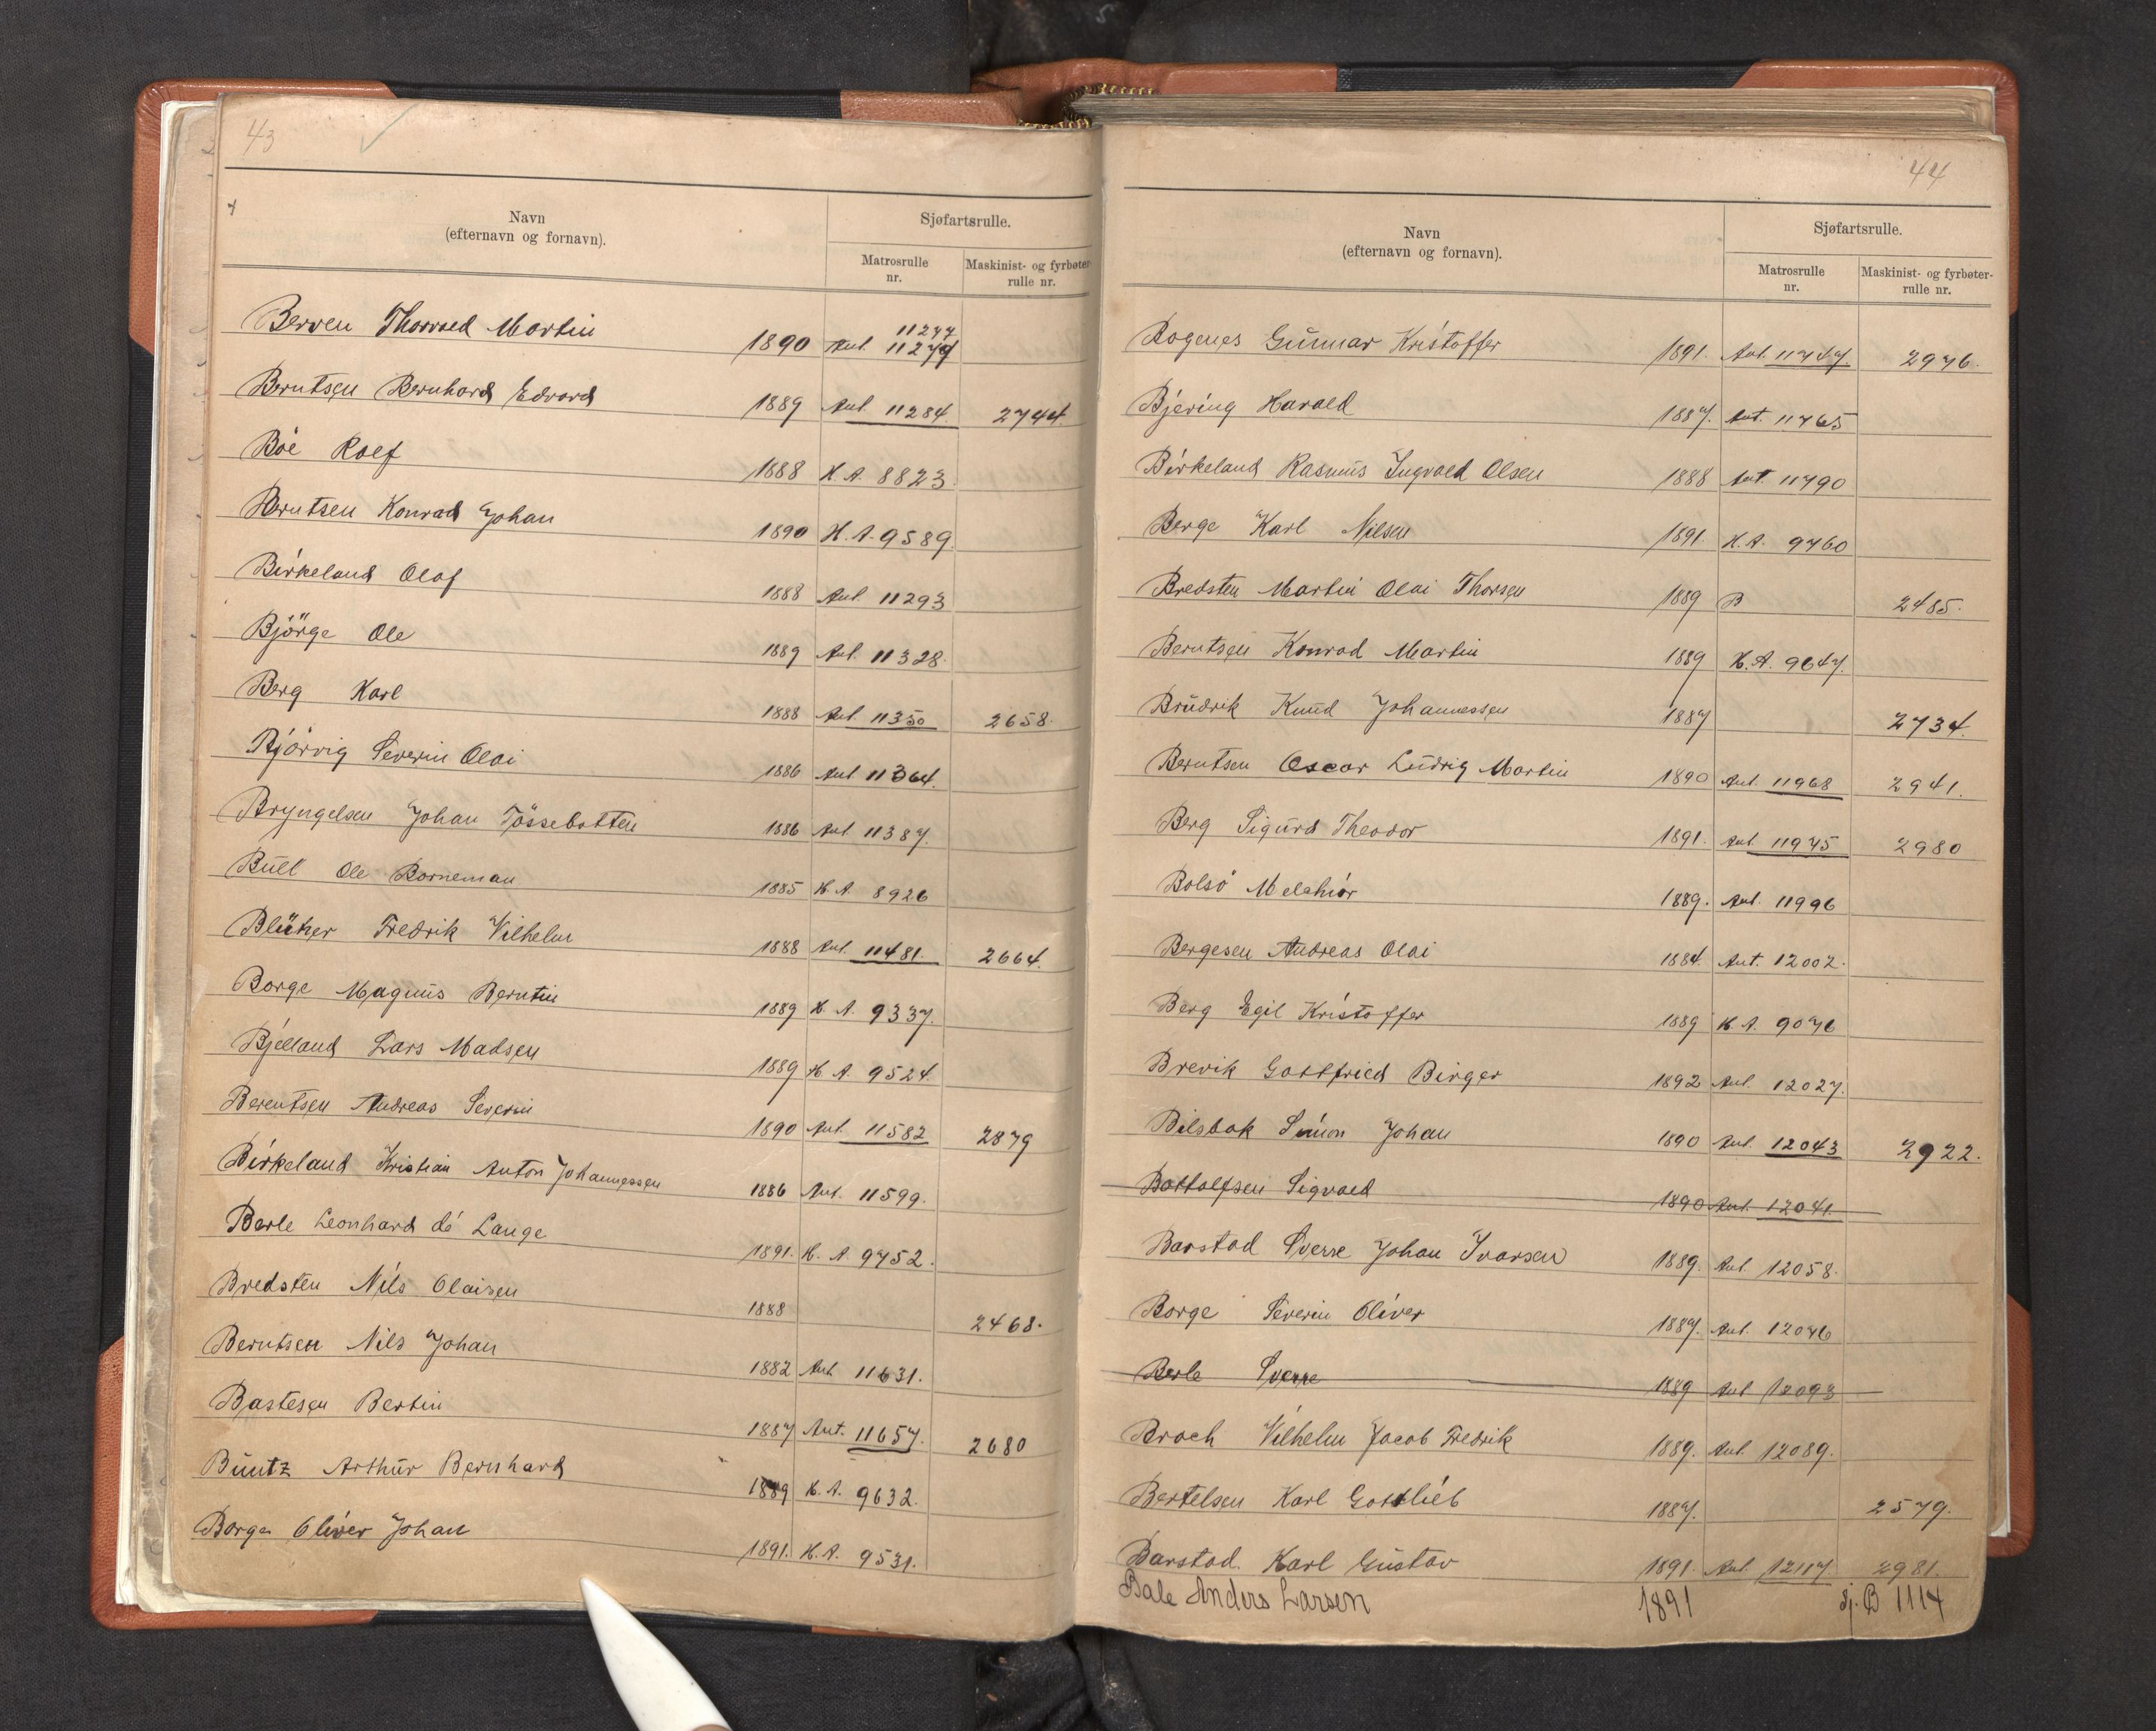 43
Navn
(efternavn og fornavn).
Sjøfartsrulle.
Matrosrulle
nr.
Maskinist- og fyrbøter-
rulle nr.
Berven Thorvald Martin 1890 Ant. 11279
Berntsen Bernhard Edvard 1889 Ant. 11284 2744
Böe Rolf 1888 H.A. 8823
Berntsen Konrad Johan 1890 H.A. 9589
Birkeland Olaf 1888 Ant. 11293
Björge Ole 1889 Ant. 11328
Berg Karl 1888 Ant. 11350 2658
Bjørvig Severin Olai 1886 Ant. 11364
Bryngelsen Johan Tössebotten 1886 Ant. 11387
Bull Ole Borneman 1885 H.A. 8926
Blücher Fredrik Vilhelm 1888 Ant. 11481 2664
Borge Magnus Berntin 1889 H.A. 9337
Bjelland Lars Madsen 1889 H.A. 9524
Berentsen Andreas Severin 1890 Ant. 11582 2879
Birkeland Kristian Anton Johannessen 1886 Ant. 11599
Berle Leonhard dé Lange 1891 H.A. 9752
Bredsten Nils Olaisen 1888 2468
Berntsen Nils Johan 1882 Ant. 11631
Bastesen Bertin 1887 Ant. 11657 2680
Buntz Arthur Bernhard 1889 H.A. 9632
Borge Oliver Johan 1891 H.A. 9531
44
Navn
(efternavn og fornavn).
Sjøfartsrulle.
Matrosrulle
nr.
Maskinist- og fyrbøter-
rulle nr.
Bogenes Gunnar Kristoffer 1891 Ant. 11747 2976
Bjering Harald 1887 Ant. 11765
Birkeland Rasmus Ingvald Olsen 1888 Ant. 11790
Berge Karl Nilsen 1891 H.A. 9760
Bredsten Martin Olai Thorsen 1889 B 2485
Berntsen Konrad Martin 1889 H.A. 9647
Brudvik Knud Johannessen 1887 2734
Berntsen Oscar Ludvig Martin 1890 Ant. 11968 2941
Berg Sigurd Theodor 1891 Ant. 11975 2980
Bolsö Melchior 1889 Ant. 11996
Bergesen Andreas Olai 1884 Ant. 12002
Berg Egil Kristoffer 1889 H.A. 9076
Brevik Gottfried Birger 1892 Ant. 12027
Bilsbak Simon Johan 1890 Ant. 12043 2922
Bottolfsen Sigvald 1890 Ant. 12041
Barstad Sverre Johan Ivarsen 1889 Ant. 12058
Borge Severin Oliver 1887 Ant. 12076
Berle Sverre 1889 Ant. 12093
Broch Vilhelm Jacob Fredrik 1889 Ant. 12089
Bertelsen Karl Gottlieb 1887 2579
Barstad Karl Gustav 1891 Ant. 12117 2981
Bale Anders Larsen 1891 B 1114